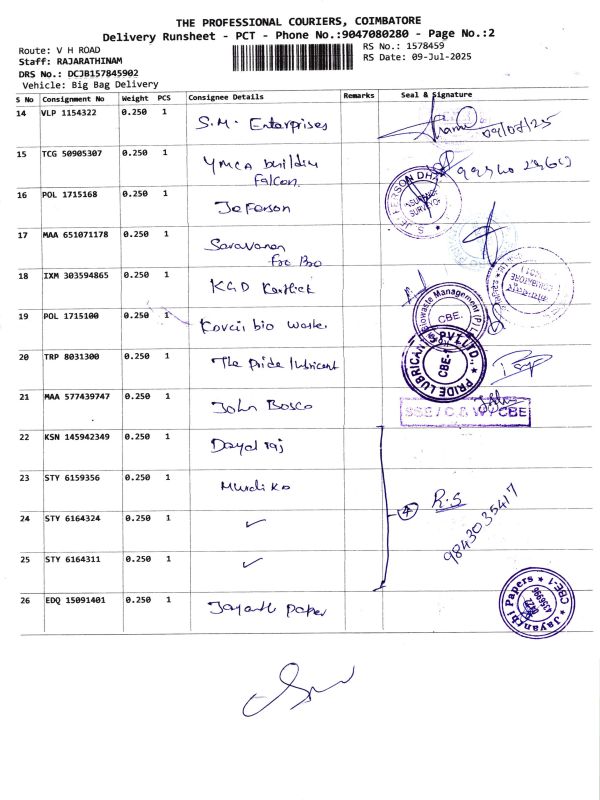 THE PROFESSIONAL COURIERS, COIMBATORE
Delivery Runsheet - PCT - Phone No.:9047080280 - Page No.:2
Route: V H ROAD
RS No.: 1578459
Staff: RAJARATHINAM
RS Date: 09-Jul-2025
DRS No.: DCJB157845902
Vehicle: Big Bag Delivery
S No Consignment No Weight PCS Consignee Details Remarks Seal & Signature
14 VLP 1154322 0.250 1 S.M. Enterprises 09/07/25
15 TCG 50905307 0.250 1 YMCA building Falcon.
16 POL 1715168 0.250 1 Jeferson
S. JEFFERSON DHAS INSURANCE SURVEYOR
17 MAA 651071178 0.250 1 Saravanan
18 IXM 303594865 0.250 1 KGD
19 POL 1715100 0.250 1 bio waste
Biowaste Management (P) CBE.
20 TRP 8031300 0.250 1 The pride lubricant
PRIDE LUBRICANTS PVT LTD., CBE-1
21 MAA 577439747 0.250 1 John Bosco
SSE / C & W / CBE
22 KSN 145942349 0.250 1 Dayal raj
23 STY 6159356 0.250 1
24 STY 6164324 0.250 1 ✓
4 R.S
9843035417
25 STY 6164311 0.250 1 ✓
26 EDQ 15091401 0.250 1 Jayanth paper
Jayanthi Papers CBE-1